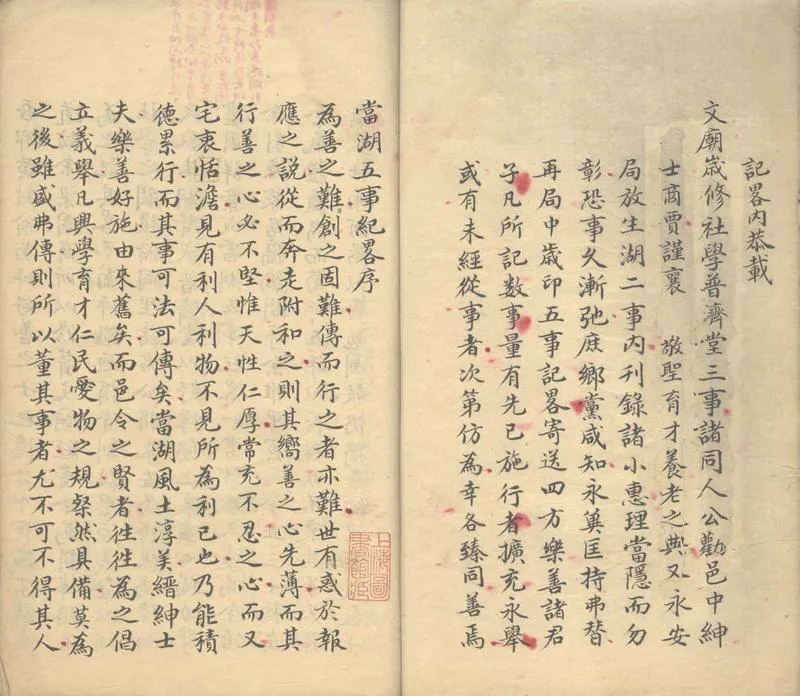 記畧內恭載
文廟歲修社學普濟堂三事諸同人公勸邑中紳
士商賈謹襄 敬聖育才養老之典又永安
局放生湖二事內刊錄諸小惠理當隱而勿
彰恐事久漸弛庶鄉黨咸知永冀匡持弗替
再局中歲印五事記畧寄送四方樂善諸君
子凡所記数事量有先已施行者擴充永舉
或有未經從事者次第仿為幸各臻同善焉
當湖五事紀畧序
為善之難創之固難傳而行之者亦難世有惑於報
應之說從而奔走附和之則其嚮善之心先薄而其
行善之心必不堅惟天性仁厚常充不忍之心而又
宅衷恬澹見有利人利物不見所為利己也乃能積
德累行而其事可法可傳矣當湖風土淳美縉紳士
夫樂善好施由來舊矣而邑令之賢者徃徃為之倡
立義舉凡興學育才仁民愛物之規粲然具備莫為
之後雖盛弗傳則所以董其事者尤不可不得其人
上海圖
書館藏